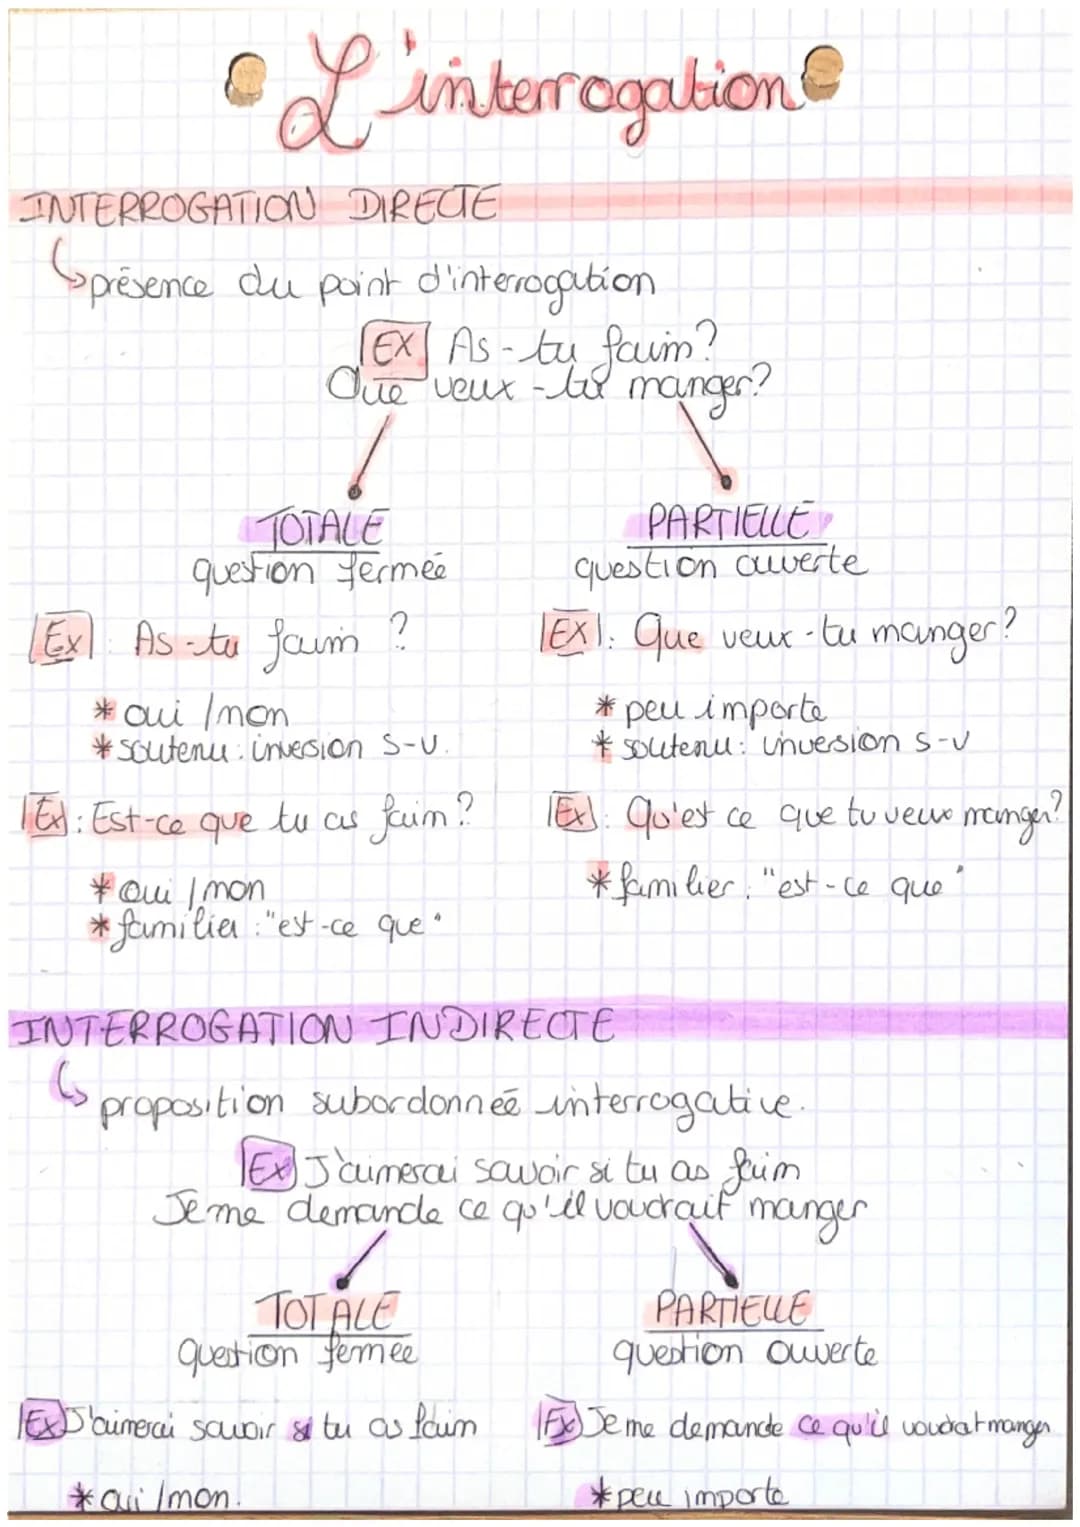 L'interrogation
INTERROGATION DIRECTE
présence du point d'interrogation
EX As-tu faim?
Que veux-tu manger?
TOTALE
question fermée
PARTIELLE
question ouverte
Ex : As-tu faim ?
* oui / non
* soutenu : inversion S-V.
EX : Que veux-tu manger?
* peu importe
* soutenu : inversion S-V
Ex : Est-ce que tu as faim?
* oui / non
* familier : "est-ce que"
Ex : Qu'est ce que tu veux manger?
* familier : "est-ce que"
INTERROGATION INDIRECTE
proposition subordonnée interrogative.
Ex J'aimerai savoir si tu as faim
Je me demande ce qu'il voudrait manger
TOTALE
question fermée
PARTIELLE
question ouverte
Ex J'aimerai savoir si tu as faim
* oui / non.
Ex Je me demande ce qu'il voudrat manger
* peu importe